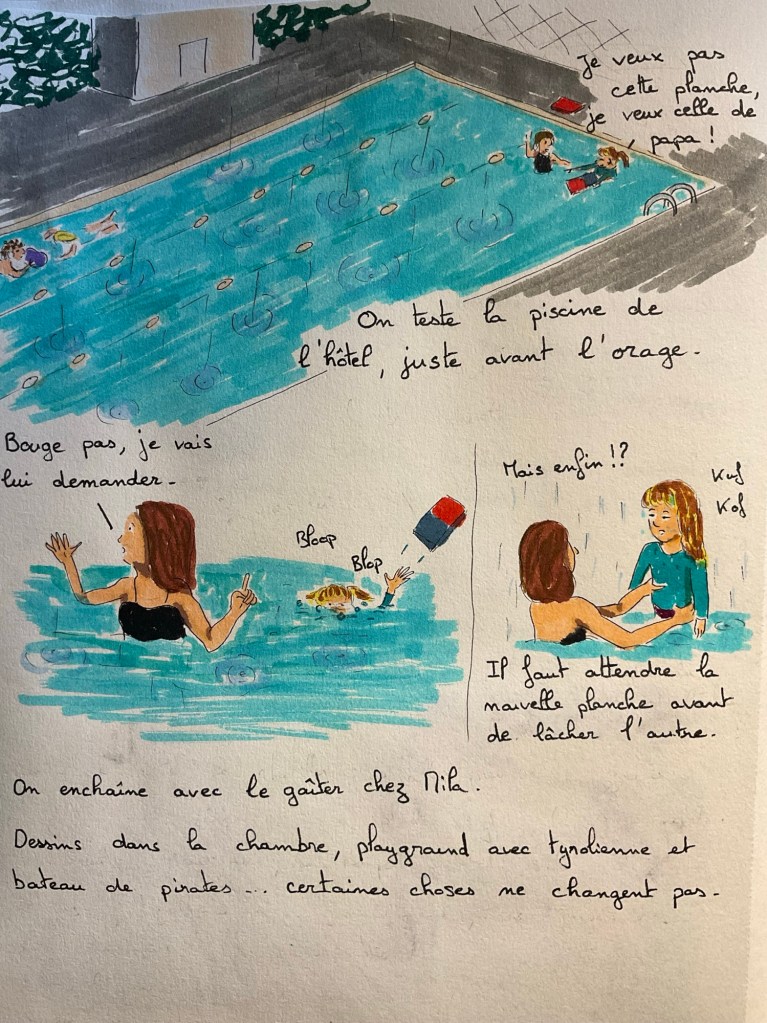 Je veux pas
cette planche,
je veux celle de
papa !
On teste la piscine de
l'hôtel, juste avant l'orage.
Bouge pas, je vais
lui demander.
Bloop
Blop
Mais enfin !?
Kuf
Kof
Il faut attendre la
nouvelle planche avant
de lâcher l'autre.
On enchaîne avec le goûter chez Mila.
Dessins dans la chambre, playground avec tyrolienne et
bateau de pirates... certaines choses ne changent pas.